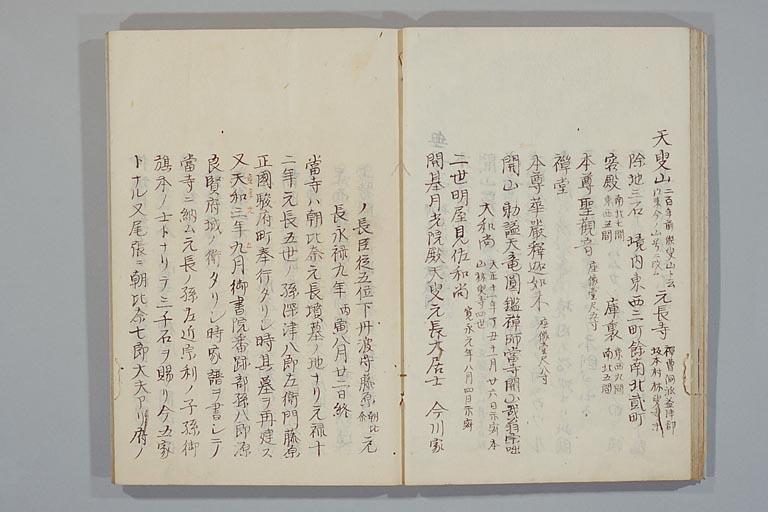 天叟山 二百年前 叟山ト云 以来今ノ山号ニ改ム 元長寺 禅曹洞派益津郡 坂本村林叟寺末
除地三石 境内東西三町餘南北貳町
客殿 南北七間 東西五間 庫裏 東西九間 南北五間
本尊聖觀音 座像壹尺五寸
禅堂
本尊華嚴釋迦如来 座像壹尺八寸
開山 勅謚天竜圓鑑禅師當寺開山
大和尚 大正十一年丁丑十二月廿六日示寂 本山林叟寺四世
二世明屋見佐和尚 寛永元年八月四日示寂
開基月光院殿天叟元長大居士 今川家
ノ長臣従五位下丹波守藤原朝比奈元
長永禄九年丙寅八月廿二日終
當寺ハ朝比奈元長墳墓ノ地ナリ元禄十
二年元長五世ノ孫深津八郎左衛門藤原
正國駿府町奉行タリシ時其墓ヲ再建ス
又天和三年九月御書院番跡部孫八郎源
良賢府城ノ衛タリシ時家譜ヲ書シテ
當寺ニ納ム元長ノ孫左近宗利ノ子孫御
旗本ノ士トナリテ二千石ヲ賜リ今五家
トナル又尾張ニ朝比奈七郎大夫アリ府ノ